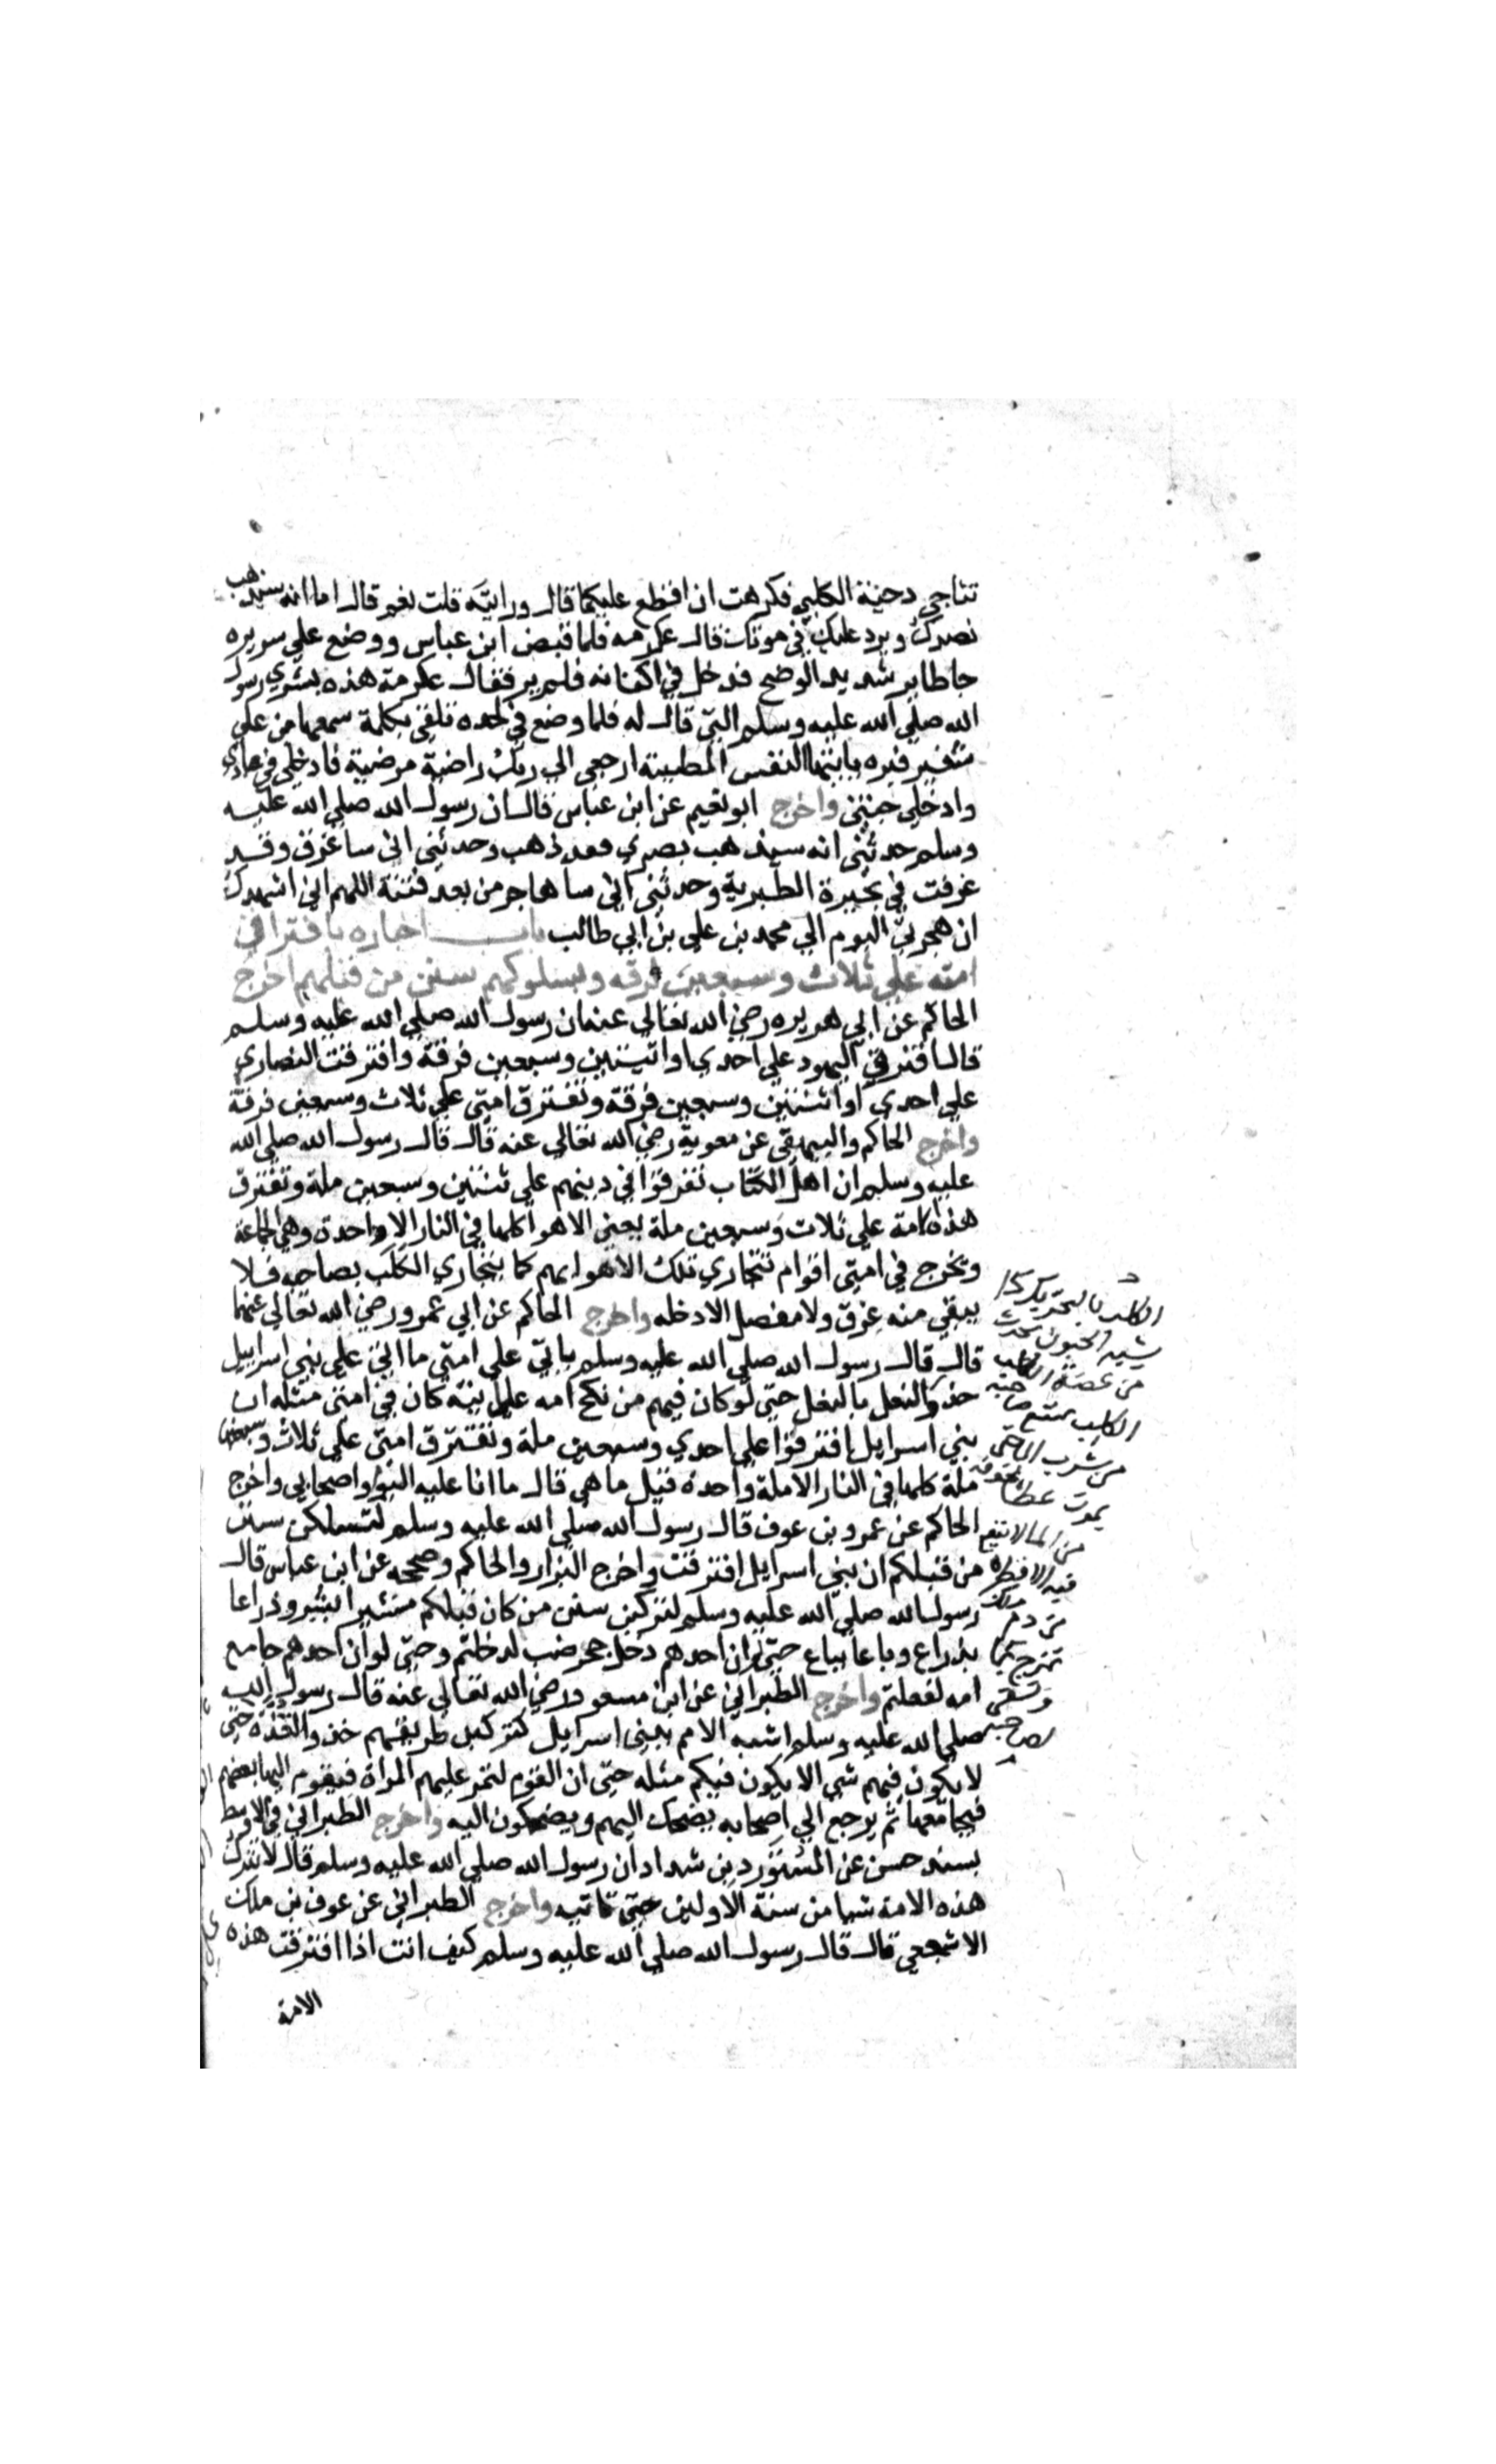 تناجي دحية الكلبي فكرهت ان اقطع عليكما قال ورايته قلت نعم قال اما انه سيذهب
بصرك ويرد عليك في موتك قال عكرمه فلما قبض ابن عباس ووضع علي سريره
جا طاير شديد الوضح فدخل في اكفانه فلم ير فقال عكرمة هذه بشري رسول
الله صلي الله عليه وسلم التي قال له فلما وضع في لحده تلقي بكلمة سمعها من علي
شفير قبره يا ايتها النفس المطمينة ارجعي الي ربك راضية مرضية فادخلي في عبادي
وادخلي جنتي واخرج ابو نعيم عن ابن عباس قال ان رسول الله صلي الله عليه
وسلم حدثني انه سيذهب بصري فقد ذهب وحدثني اني ساغرق وقد
غرقت في بحيرة الطبرية وحدثني اني ساهاجر من بعد فتنة اللهم اني اشهدك
ان هجرتي اليوم الي محمد بن علي بن ابي طالب باب اخباره بافتراق
امته علي ثلاث وسبعين فرقه وبسلوكهم سنن من قبلهم اخرج
الحاكم عن ابي هريره رضي الله تعالي عنه ان رسول الله صلي الله عليه وسلم
قال افترقت اليهود علي احدي او اثنتين وسبعين فرقة وافترقت النصاري
علي احدي او اثنتين وسبعين فرقة وتفترق امتي علي ثلاث وسبعين فرقة
واخرج الحاكم والبيهقي عن معوية رضي الله تعالي عنه قال قال رسول الله صلي الله
عليه وسلم ان اهل الكتاب تفرقوا في دينهم علي ثنتين وسبعين ملة وتفترق
هذه الامة علي ثلاث وسبعين ملة يعني الاهوا كلها في النار الا واحدة وهي الجماعة
ويخرج في امتي اقوام تتجاري تلك الاهوا بهم كما يتجاري الكلب بصاحبه فلا
يبقي منه عرق ولا مفصل الا دخله واخرج الحاكم عن ابي عمرو رضي الله تعالي عنهما
قال قال رسول الله صلي الله عليه وسلم ياتي علي امتي ما اتي علي بني اسراييل
حذو النعل بالنعل حتي لو كان فيهم من نكح امه علانية كان في امتي مثله ان
بني اسرايل افترقوا علي احدي وسبعين ملة وتفترق امتي علي ثلاث وسبعين
ملة كلها في النار الا ملة واحدة قيل ما هي قال ما انا عليه اليوم واصحابي واخرج
الحاكم عن عمرو بن عوف قال رسول الله صلي الله عليه وسلم لتسلكن سنن
من قبلكم ان بني اسرايل افترقت واخرج البزار والحاكم وصححه عن ابن عباس قال
رسول الله صلي الله عليه وسلم لتركبن سنن من كان قبلكم شبرا بشبر وذراعا
بذراع وباعا بباع حتي لو ان احدهم دخل جحر ضب لدخلتم وحتي لو ان احدهم جامع
امه لفعلتم واخرج الطبراني عن ابن مسعود رضي الله تعالي عنه قال رسول الله
صلي الله عليه وسلم اشبه الامم ببني اسرايل لتركبن طريقهم حذو القذة حتي
لا يكون فيهم شي الا يكون فيكم مثله حتي ان القوم لتمر عليهم المراة فيقوم اليها بعضهم
فيجامعها ثم يرجع الي اصحابه يضحك اليهم ويضحكون اليه واخرج الطبراني في الاوسط
بسند حسن عن المستورد بن شداد ان رسول الله صلي الله عليه وسلم قال لا تترك
هذه الامة شيا من سنة الاولين حتي تاتيه واخرج الطبراني عن عوف بن ملك
الاشجعي قال قال رسول الله صلي الله عليه وسلم كيف انت اذا افترقت هذه
الامة
الكلب بالتحريك دا
شبه الجنون يحدث
من عضة الكلب
الكلب يمتنع صاحبه
من شرب الما حتي
يموت عطشا